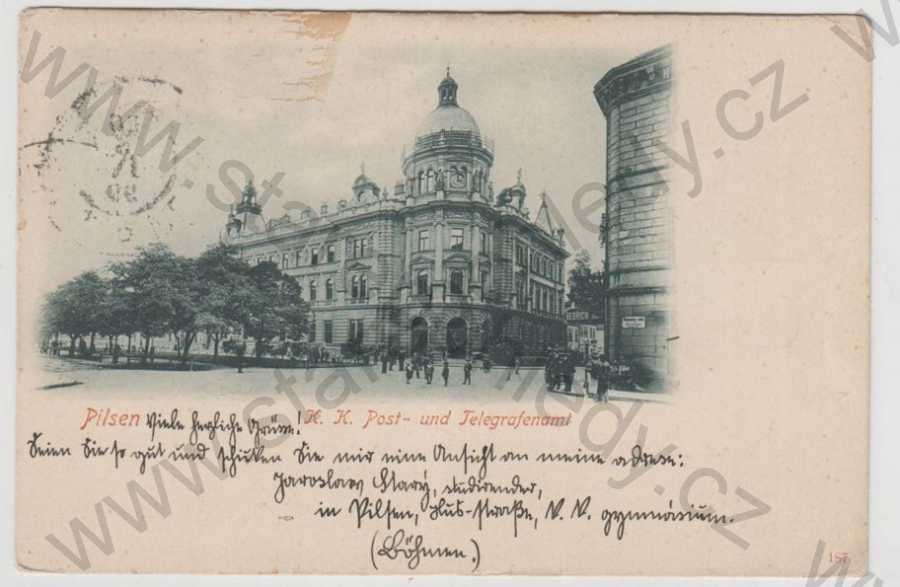 Pilsen Viele herzliche Grüße! K. K. Post- und Telegrafenamt
Seien Sie so gut und schicken Sie mir eine Ansicht an meine adresse:
Jaroslaw Starý, studirender,
in Pilsen, Hus-Straße, V. V. gymnásium.
(Böhmen.)
187
www.stare-pohledy.cz